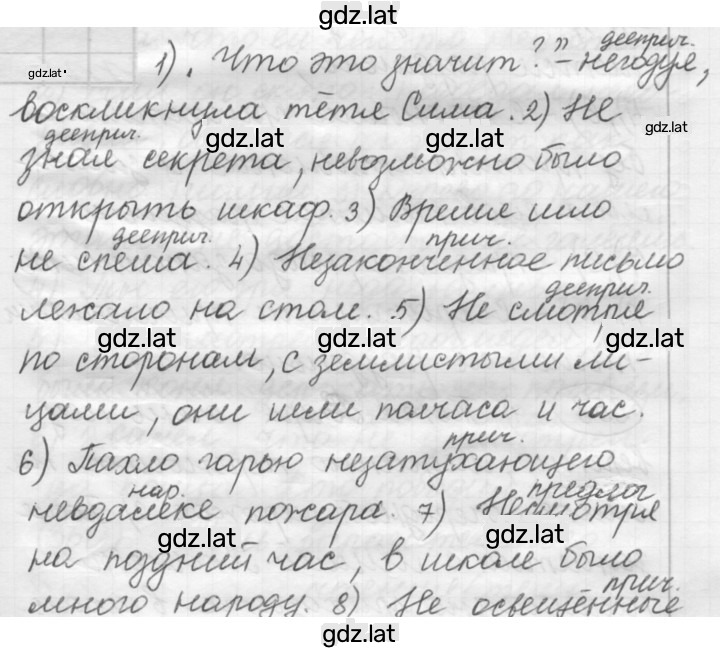 gdz.lat
дееприч.
1). Что это значит?"– негодуя,
gdz.lat
воскликнула тётя Сима. 2) Не
дееприч.
gdz.lat gdz.lat gdz.lat
зная секрета, невозможно было
открыть шкаф. 3) Время шло
дееприч. прич.
не спеша. 4) Незаконченное письмо
дееприч.
лежало на столе. 5) Не смотря
gdz.lat gdz.lat gdz.lat
по сторонам, с землистыми ли-
цами, они шли полчаса и час.
прич.
6) Пахло гарью незатухающего
нар. предлог
невдалеке пожара. 7) Несмотря
gdz.lat gdz.lat
на поздний час, в школе было
прич.
много народу. 8) Не освещённые
gdz.lat